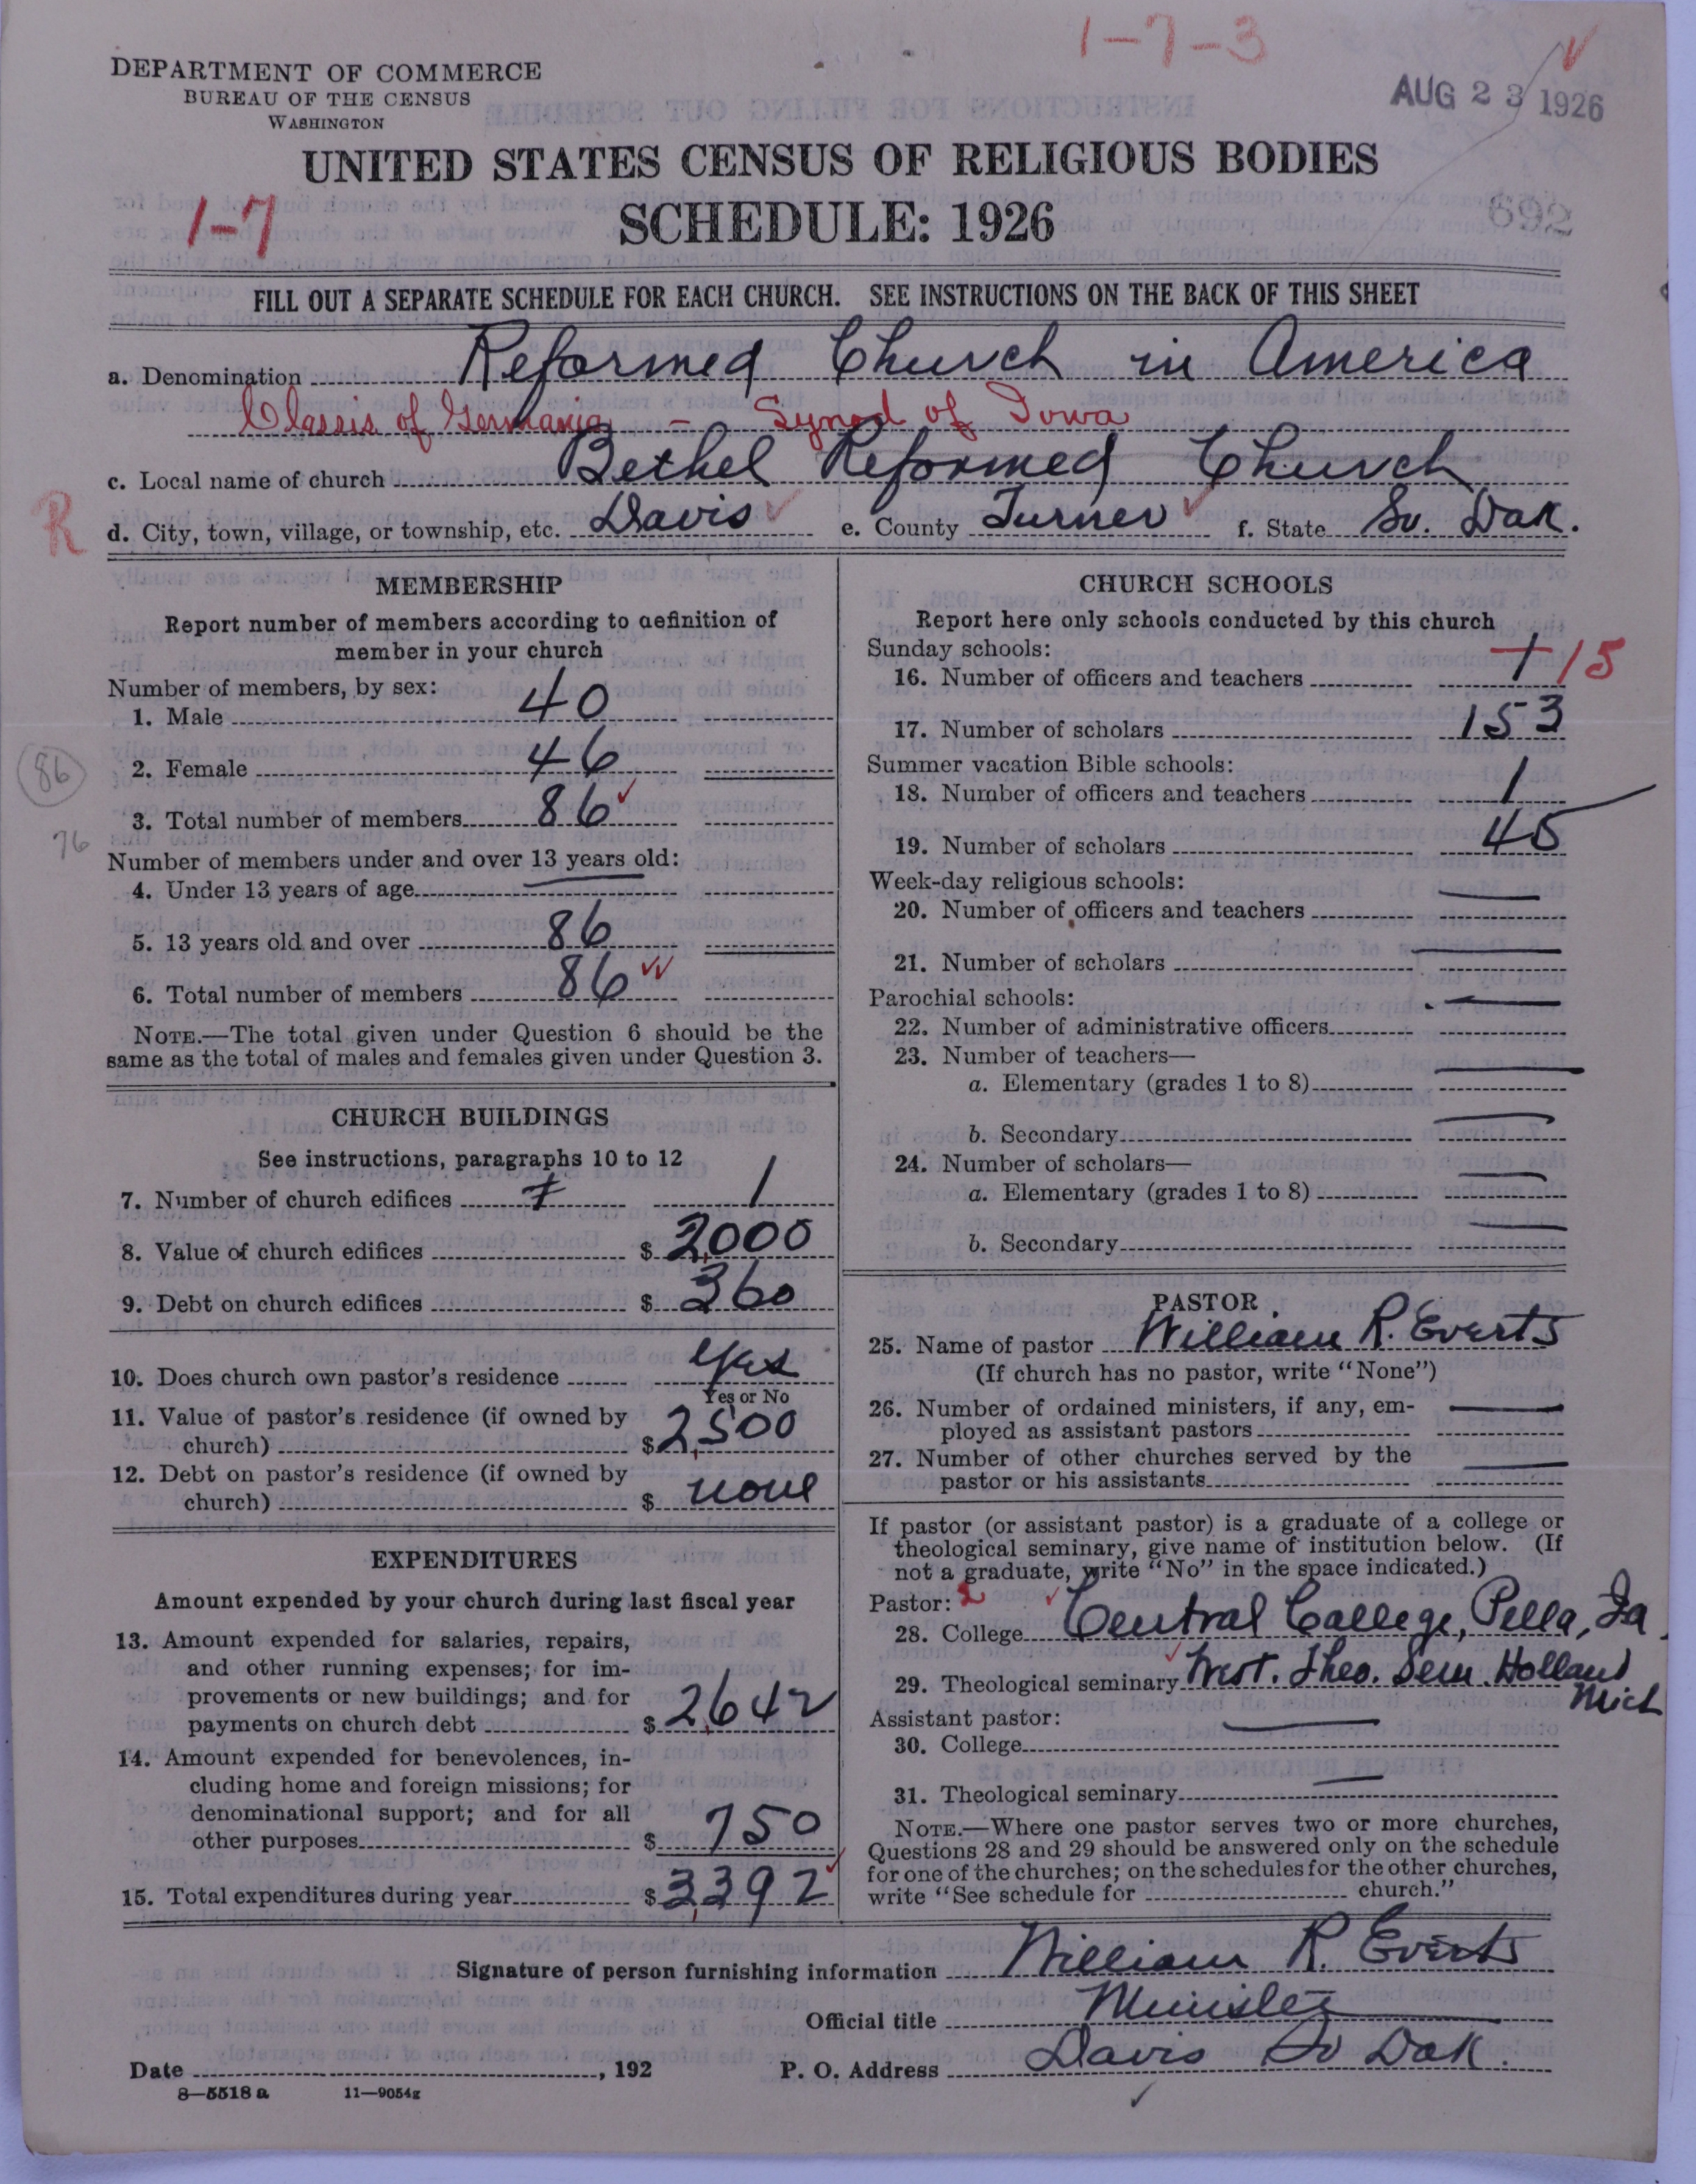 1-7-3
DEPARTMENT OF COMMERCE
BUREAU OF THE CENSUS
WASHINGTON
AUG 23 1926
UNITED STATES CENSUS OF RELIGIOUS BODIES
1-7
SCHEDULE: 1926
692
FILL OUT A SEPARATE SCHEDULE FOR EACH CHURCH. SEE INSTRUCTIONS ON THE BACK OF THIS SHEET
a. Denomination Reformed Church in America
Classis of Germania - Synod of Iowa
c. Local name of church Bethel Reformed Church
R
d. City, town, village, or township, etc. Davis e. County Turner f. State So. Dak.
MEMBERSHIP
Report number of members according to definition of
member in your church
Number of members, by sex:
1. Male 40
2. Female 46
86
3. Total number of members 86
76
Number of members under and over 13 years old:
4. Under 13 years of age —
5. 13 years old and over 86
6. Total number of members 86
NOTE.—The total given under Question 6 should be the
same as the total of males and females given under Question 3.
CHURCH BUILDINGS
See instructions, paragraphs 10 to 12
7. Number of church edifices 1
8. Value of church edifices $ 2,000
9. Debt on church edifices $ 360
10. Does church own pastor's residence yes
Yes or No
11. Value of pastor's residence (if owned by
church) $ 2,500
12. Debt on pastor's residence (if owned by
church) $ none
EXPENDITURES
Amount expended by your church during last fiscal year
13. Amount expended for salaries, repairs,
and other running expenses; for im-
provements or new buildings; and for
payments on church debt $ 2,642
14. Amount expended for benevolences, in-
cluding home and foreign missions; for
denominational support; and for all
other purposes $ 750
15. Total expenditures during year $ 3,392
CHURCH SCHOOLS
Report here only schools conducted by this church
Sunday schools:
16. Number of officers and teachers 15
17. Number of scholars 153
Summer vacation Bible schools:
18. Number of officers and teachers 1
19. Number of scholars 45
Week-day religious schools:
20. Number of officers and teachers —
21. Number of scholars —
Parochial schools:
22. Number of administrative officers —
23. Number of teachers—
a. Elementary (grades 1 to 8) —
b. Secondary —
24. Number of scholars—
a. Elementary (grades 1 to 8) —
b. Secondary —
PASTOR
25. Name of pastor William R. Everts
(If church has no pastor, write "None")
26. Number of ordained ministers, if any, em-
ployed as assistant pastors —
27. Number of other churches served by the
pastor or his assistants —
If pastor (or assistant pastor) is a graduate of a college or
theological seminary, give name of institution below. (If
not a graduate, write "No" in the space indicated.)
Pastor: 2
28. College Central College, Pella, Ia.
29. Theological seminary West. Theo. Sem. Holland
Mich
Assistant pastor:
30. College —
31. Theological seminary —
NOTE.—Where one pastor serves two or more churches,
Questions 28 and 29 should be answered only on the schedule
for one of the churches; on the schedules for the other churches,
write "See schedule for church."
Signature of person furnishing information William R. Everts
Official title Minister
Date , 192 P. O. Address Davis So Dak.
8—5518 a 11—9054g